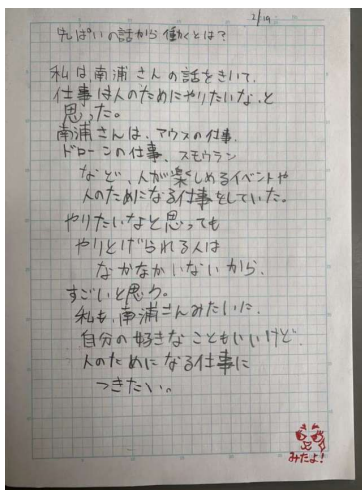 2/19
せんぱいの話から働くとは?
私は南浦さんの話をきいて、
仕事は人のためにやりたいな、と
思った。
南浦さんは、マウスの仕事、
ドローンの仕事、スモウラン
など、人が楽しめるイベントや
人のためになる仕事をしていた。
やりたいなと思っても
やりとげられる人は
なかなかいないから、
すごいと思う。
私も、南浦さんみたいに、
自分の好きなこともいいけど、
人のためになる仕事に
つきたい。
みたよ!